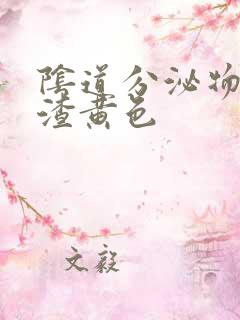 陰道分泌物
渣黄色
文毅